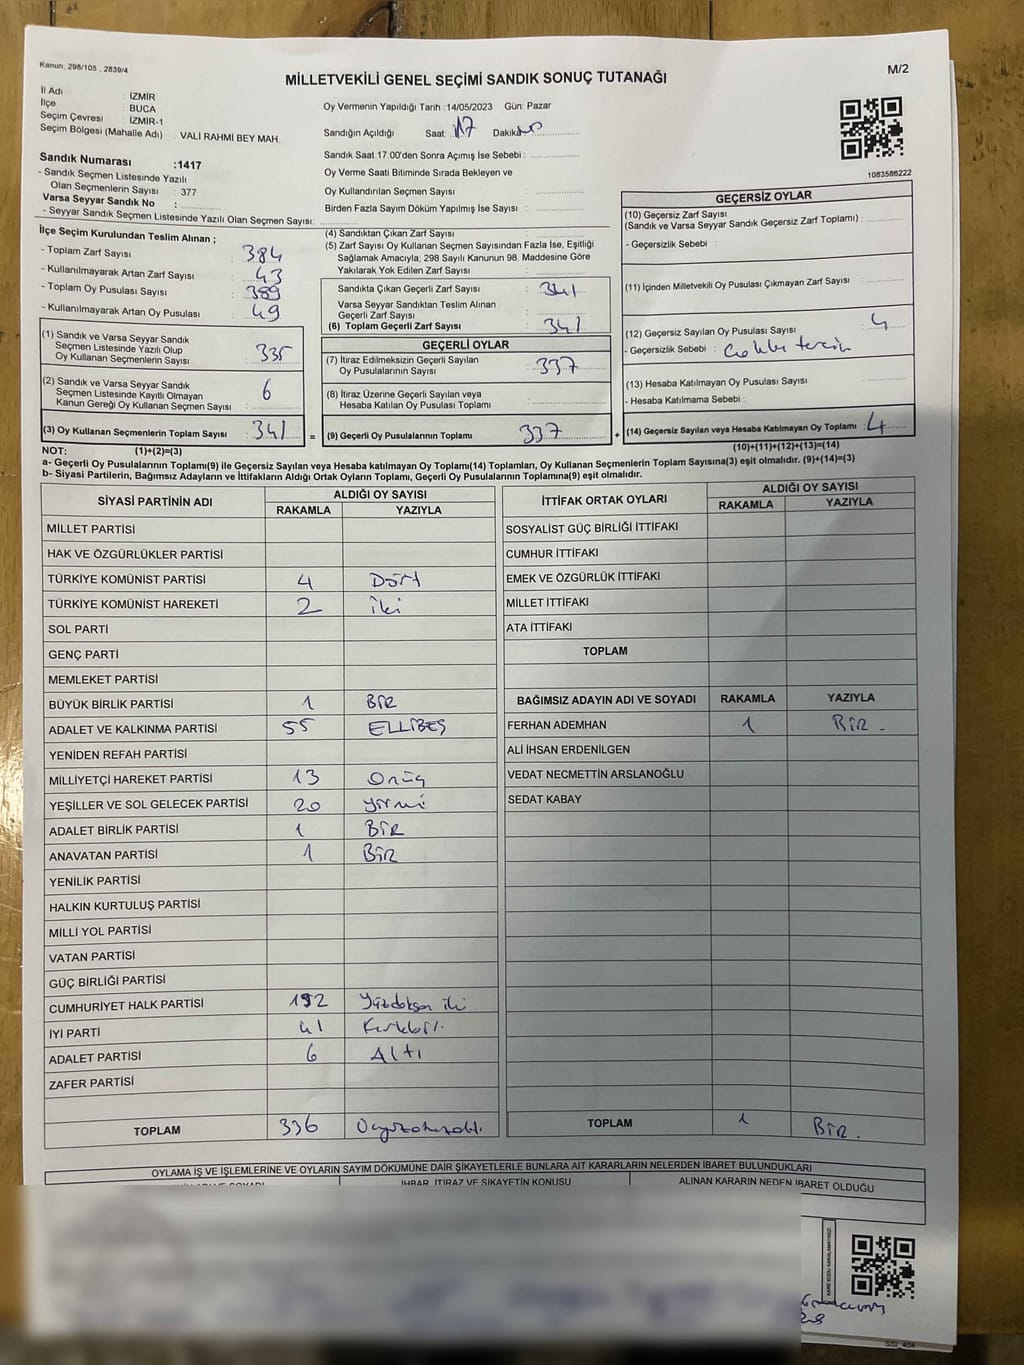 Kanun; 298/105 , 2839/4
MİLLETVEKİLİ GENEL SEÇİMİ SANDIK SONUÇ TUTANAĞI
M/2
İl Adı : İZMİR
İlçe : BUCA
Seçim Çevresi : İZMİR-1
Seçim Bölgesi (Mahalle Adı) VALİ RAHMİ BEY MAH.
Sandık Numarası :1417
- Sandık Seçmen Listesinde Yazılı
Olan Seçmenlerin Sayısı : 377
Varsa Seyyar Sandık No :
- Seyyar Sandık Seçmen Listesinde Yazılı Olan Seçmen Sayısı:
Oy Vermenin Yapıldığı Tarih :14/05/2023 Gün: Pazar
Sandığın Açıldığı Saat: 17 Dakika
Sandık Saat 17:00'den Sonra Açımış İse Sebebi :
Oy Verme Saati Bitiminde Sırada Bekleyen ve
Oy Kullandırılan Seçmen Sayısı :
Birden Fazla Sayım Döküm Yapılmış İse Sayısı :
1083586222
İlçe Seçim Kurulundan Teslim Alınan ;
- Toplam Zarf Sayısı : 384
- Kullanılmayarak Artan Zarf Sayısı : 43
- Toplam Oy Pusulası Sayısı : 389
- Kullanılmayarak Artan Oy Pusulası : 49
(1) Sandık ve Varsa Seyyar Sandık
Seçmen Listesinde Yazılı Olup
Oy Kullanan Seçmenlerin Sayısı : 335
(2) Sandık ve Varsa Seyyar Sandık
Seçmen Listesinde Kayıtlı Olmayan
Kanun Gereği Oy Kullanan Seçmen Sayısı : 6
(3) Oy Kullanan Seçmenlerin Toplam Sayısı : 341
(4) Sandıktan Çıkan Zarf Sayısı :
(5) Zarf Sayısı Oy Kullanan Seçmen Sayısından Fazla İse, Eşitliği
Sağlamak Amacıyla; 298 Sayılı Kanunun 98. Maddesine Göre
Yakılarak Yok Edilen Zarf Sayısı :
Sandıkta Çıkan Geçerli Zarf Sayısı : 341
Varsa Seyyar Sandıktan Teslim Alınan
Geçerli Zarf Sayısı :
(6) Toplam Geçerli Zarf Sayısı : 341
GEÇERLİ OYLAR
(7) İtiraz Edilmeksizin Geçerli Sayılan
Oy Pusulalarının Sayısı : 337
(8) İtiraz Üzerine Geçerli Sayılan veya
Hesaba Katılan Oy Pusulası Toplamı :
= (9) Geçerli Oy Pusulalarının Toplamı : 337
GEÇERSİZ OYLAR
(10) Geçersiz Zarf Sayısı
(Sandık ve Varsa Seyyar Sandık Geçersiz Zarf Toplamı) :
- Geçersizlik Sebebi :
(11) İçinden Milletvekili Oy Pusulası Çıkmayan Zarf Sayısı :
(12) Geçersiz Sayılan Oy Pusulası Sayısı : 4
- Geçersizlik Sebebi : Çoklu tercih
(13) Hesaba Katılmayan Oy Pusulası Sayısı :
- Hesaba Katılmama Sebebi :
+ (14) Geçersiz Sayılan veya Hesaba Katılmayan Oy Toplamı : 4
NOT: (1)+(2)=(3)
(10)+(11)+(12)+(13)=(14)
a- Geçerli Oy Pusulalarının Toplamı(9) ile Geçersiz Sayılan veya Hesaba katılmayan Oy Toplamı(14) Toplamları, Oy Kullanan Seçmenlerin Toplam Sayısına(3) eşit olmalıdır. (9)+(14)=(3)
b- Siyasi Partilerin, Bağımsız Adayların ve İttifakların Aldığı Ortak Oyların Toplamı, Geçerli Oy Pusulalarının Toplamına(9) eşit olmalıdır.
SİYASİ PARTİNİN ADI ALDIĞI OY SAYISI
RAKAMLA YAZIYLA
MİLLET PARTİSİ
HAK VE ÖZGÜRLÜKLER PARTİSİ
TÜRKİYE KOMÜNİST PARTİSİ 4 Dört
TÜRKİYE KOMÜNİST HAREKETİ 2 iki
SOL PARTİ
GENÇ PARTİ
MEMLEKET PARTİSİ
BÜYÜK BİRLİK PARTİSİ 1 BİR
ADALET VE KALKINMA PARTİSİ 55 ELLİBEŞ
YENİDEN REFAH PARTİSİ
MİLLİYETÇİ HAREKET PARTİSİ 13 Onüç
YEŞİLLER VE SOL GELECEK PARTİSİ 20 yirmi
ADALET BİRLİK PARTİSİ 1 BİR
ANAVATAN PARTİSİ 1 BİR
YENİLİK PARTİSİ
HALKIN KURTULUŞ PARTİSİ
MİLLİ YOL PARTİSİ
VATAN PARTİSİ
GÜÇ BİRLİĞİ PARTİSİ
CUMHURİYET HALK PARTİSİ 192 Yüzdoksan iki
İYİ PARTİ 41 Kırkbir
ADALET PARTİSİ 6 Altı
ZAFER PARTİSİ
TOPLAM 336 Üçyüzotuzaltı
İTTİFAK ORTAK OYLARI ALDIĞI OY SAYISI
RAKAMLA YAZIYLA
SOSYALİST GÜÇ BİRLİĞİ İTTİFAKI
CUMHUR İTTİFAKI
EMEK VE ÖZGÜRLÜK İTTİFAKI
MİLLET İTTİFAKI
ATA İTTİFAKI
TOPLAM
BAĞIMSIZ ADAYIN ADI VE SOYADI RAKAMLA YAZIYLA
FERHAN ADEMHAN 1 BİR .
ALİ İHSAN ERDENİLGEN
VEDAT NECMETTİN ARSLANOĞLU
SEDAT KABAY
TOPLAM 1 BİR .
OYLAMA İŞ VE İŞLEMLERİNE VE OYLARIN SAYIM DÖKÜMÜNE DAİR ŞİKAYETLERLE BUNLARA AİT KARARLARIN NELERDEN İBARET BULUNDUKLARI
İHBAR, İTİRAZ VE ŞİKAYETİN KONUSU
ALINAN KARARIN NEDEN İBARET OLDUĞU
KARE KODU KARALAMAYINIZ!